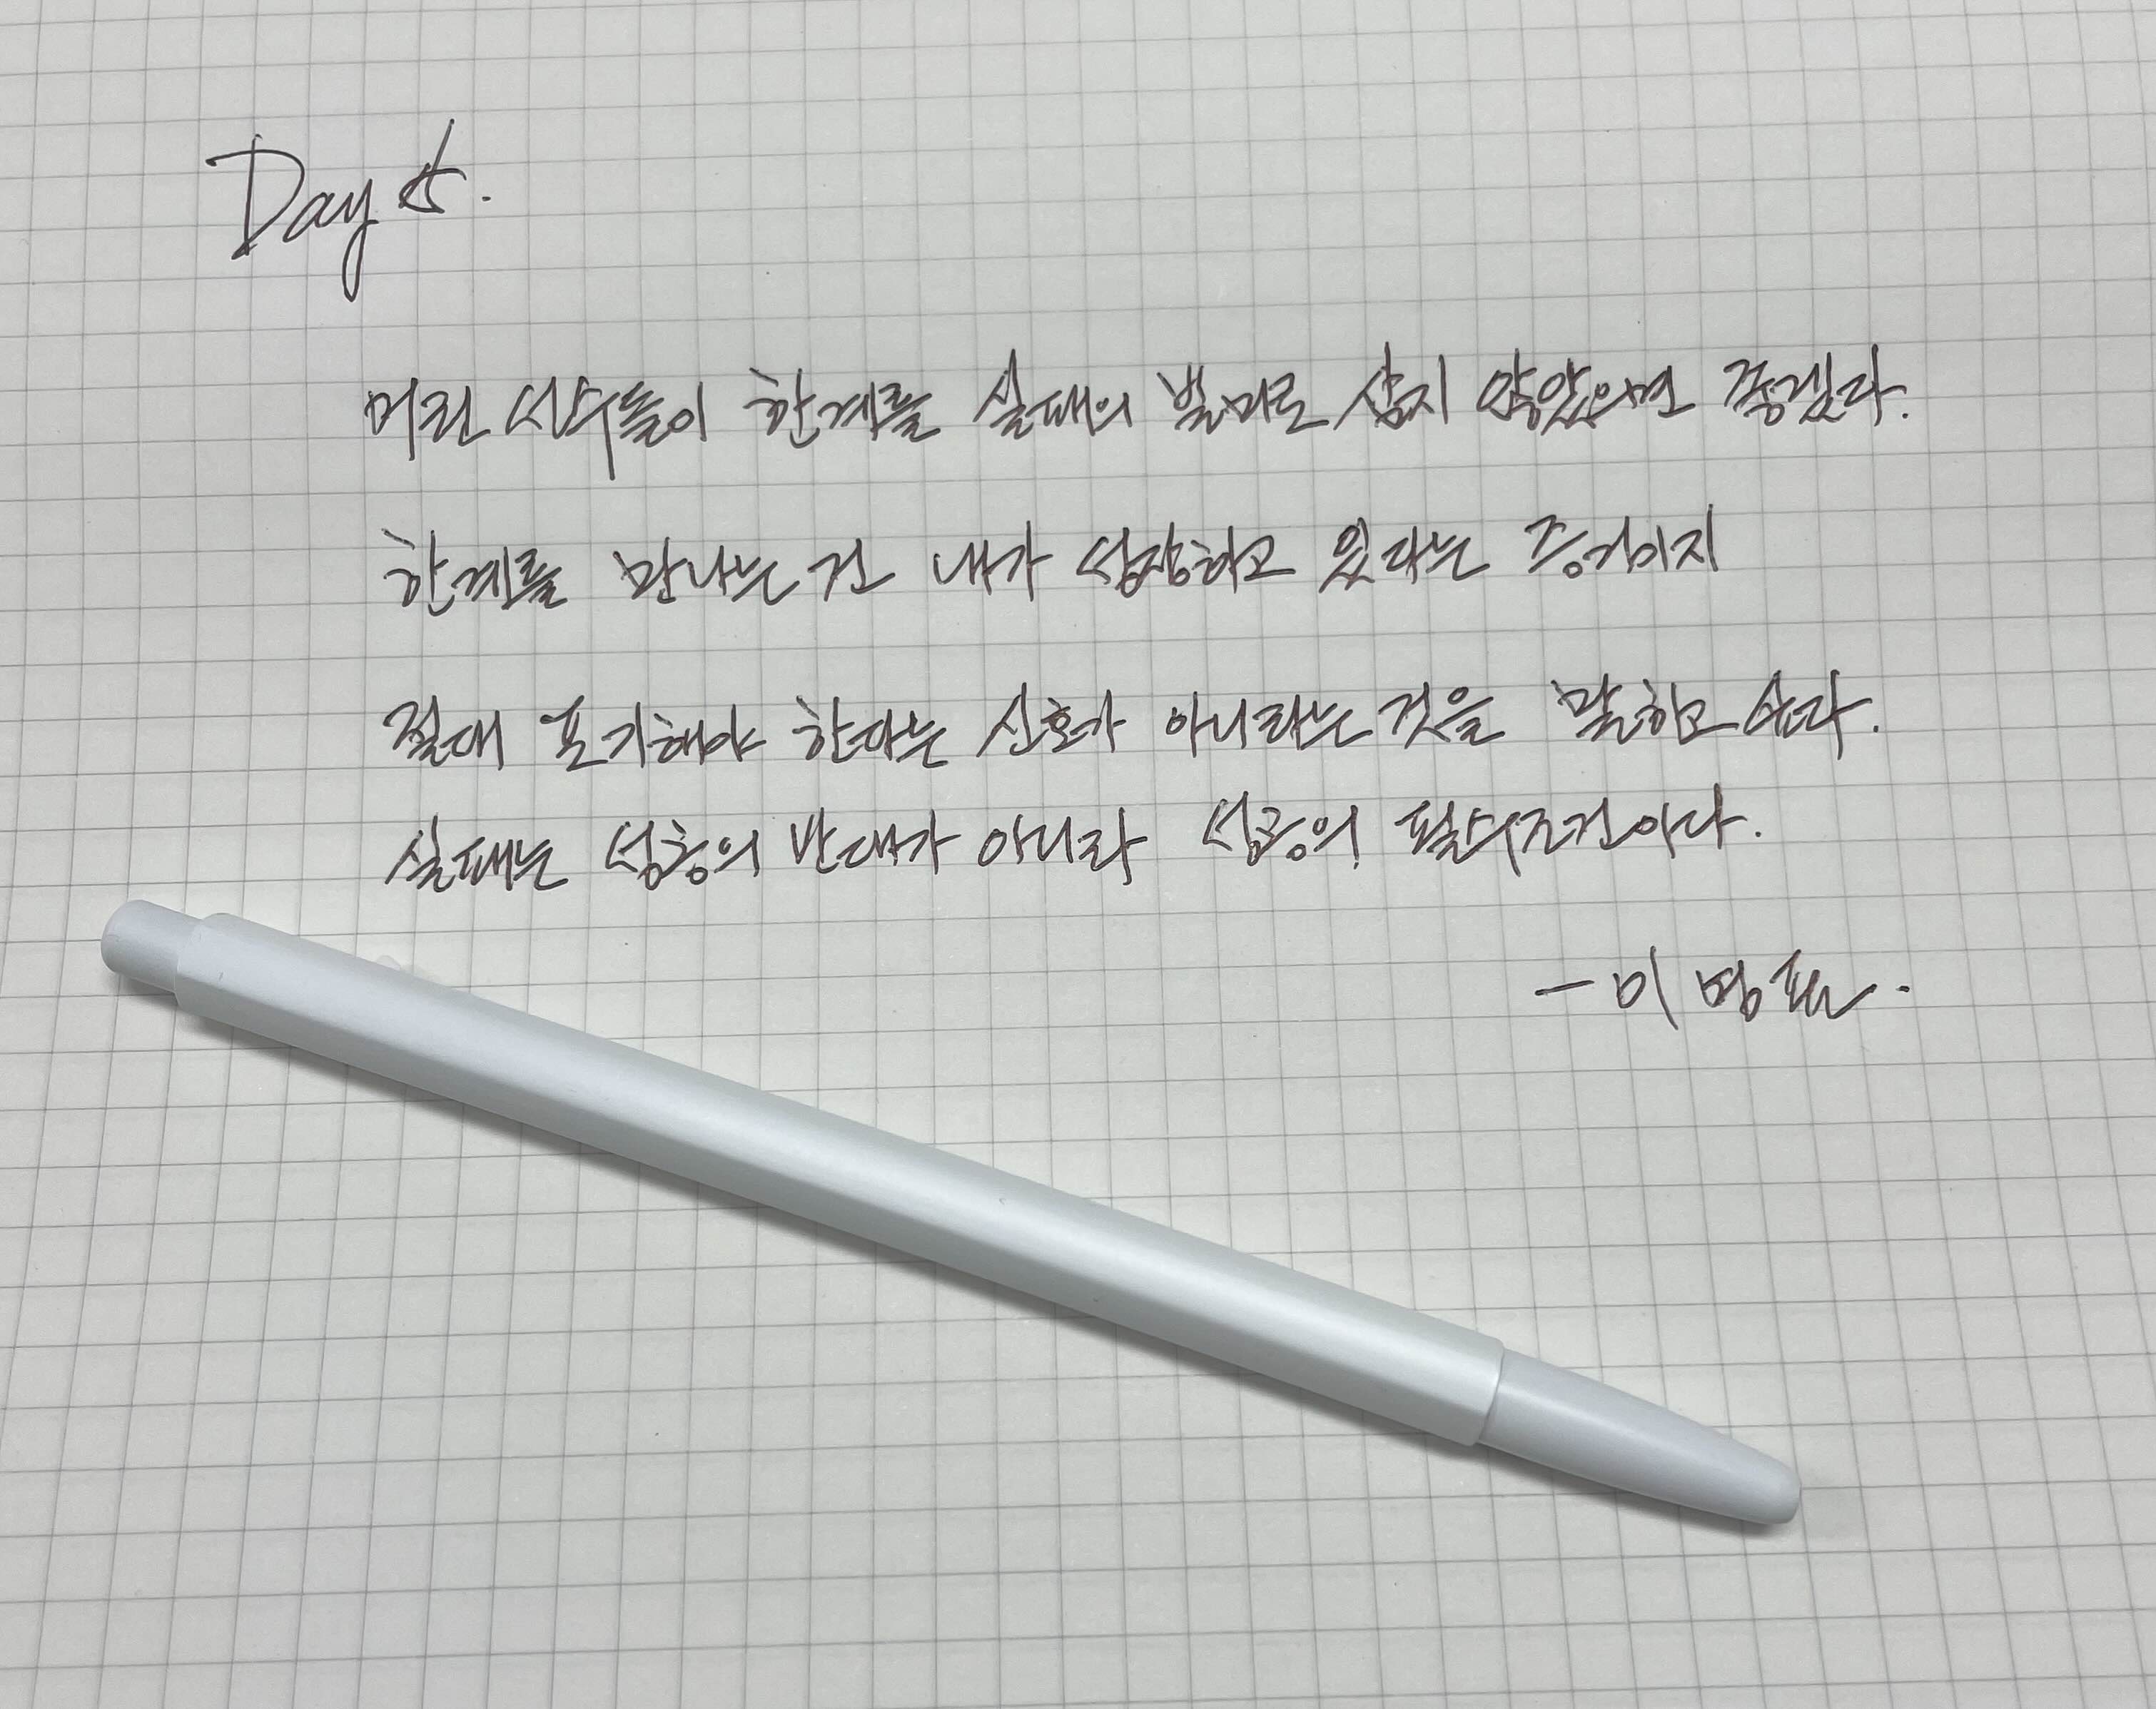 Day 5.
어린 선수들이 한계를 실패의 빌미로 삼지 않았으면 좋겠다.
한계를 만나는 건 내가 성장하고 있다는 증거이지
절대 포기해야 한다는 신호가 아니라는 것을 말하고 싶다.
실패는 성공의 반대가 아니라 성공의 필수조건이다.
- 이영표.